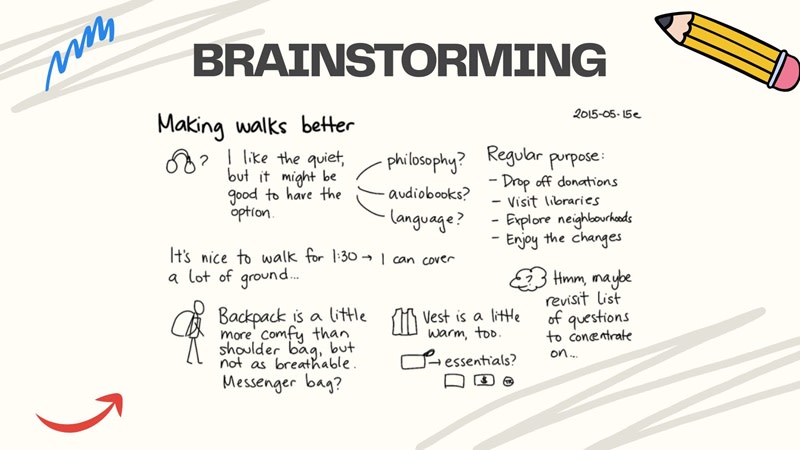 BRAINSTORMING
2015-05-15e
Making walks better
? I like the quiet,
but it might be
good to have the
option.
philosophy?
audiobooks?
language?
Regular purpose:
- Drop off donations
- Visit libraries
- Explore neighbourhoods
- Enjoy the changes
It's nice to walk for 1:30 → I can cover
a lot of ground...
? Hmm, maybe
revisit list
of questions
to concentrate
on...
Backpack is a little
more comfy than
shoulder bag, but
not as breathable.
Messenger bag?
Vest is a little
warm, too.
→ essentials?
$